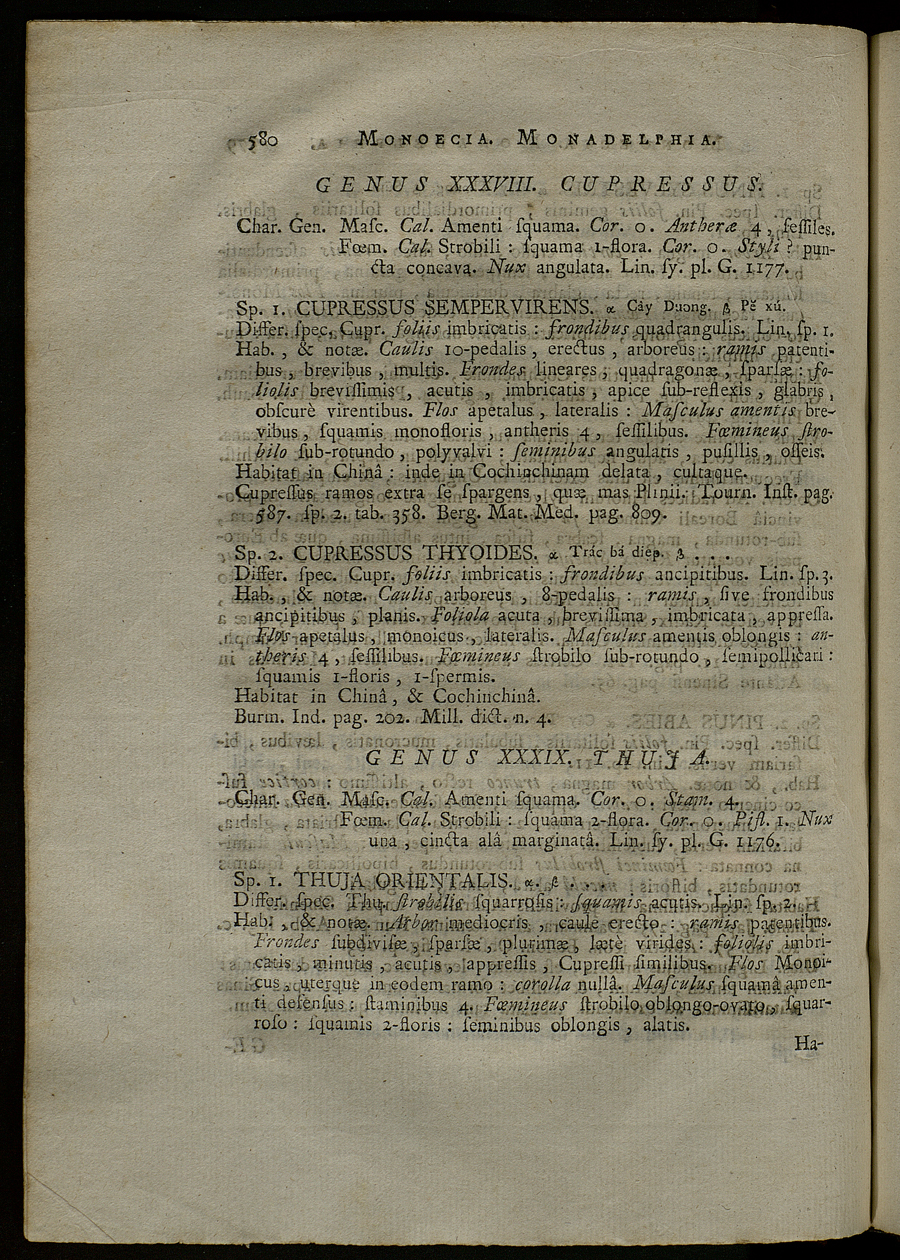 580 MONOECIA. MONADELPHIA.
GENUS XXXVIII. CUPRESSUS.
Char. Gen. Maſc. Cal. Amenti ſquama. Cor. 0. Antheræ 4, ſeſſiles.
Fœm. Cal. Strobili : ſquama 1-flora. Cor. 0. Styli ? pun-
cta concava. Nux angulata. Lin. ſy. pl. G. 1177.
Sp. 1. CUPRESSUS SEMPERVIRENS. α Cây Duong. β Pĕ xú.
Differ. ſpec. Cupr. foliis imbricatis : frondibus quadrangulis. Lin. ſp. 1.
Hab., & notæ. Caulis 10-pedalis, erectus, arboreus : ramis patenti-
bus, brevibus, multis. Frondes lineares, quadragonæ, ſparſæ : fo-
liolis breviſſimis, acutis, imbricatis, apice ſub-reflexis, glabris,
obſcurè virentibus. Flos apetalus, lateralis : Maſculus amentis bre-
vibus, ſquamis monofloris, antheris 4, ſeſſilibus. Fœmineus ſtro-
bilo ſub-rotundo, polyvalvi : ſeminibus angulatis, puſillis, oſſeis.
Habitat in Chinâ : inde in Cochinchinam delata, cultaque.
Cupreſſus ramos extra ſe ſpargens, quæ mas Plinii. Tourn. Inſt. pag.
587. ſp. 2. tab. 358. Berg. Mat. Med. pag. 809.
Sp. 2. CUPRESSUS THYOIDES. α Trác bá diêp. β . . .
Differ. ſpec. Cupr. foliis imbricatis : frondibus ancipitibus. Lin. ſp. 3.
Hab., & notæ. Caulis arboreus, 8-pedalis : ramis, ſive frondibus
ancipitibus, planis. Foliola acuta, breviſſima, imbricata, appreſſa.
Flos apetalus, monoicus, lateralis. Maſculus amentis oblongis : an-
theris 4, ſeſſilibus. Fœmineus ſtrobilo ſub-rotundo, ſemipollicari :
ſquamis 1-floris, 1-ſpermis.
Habitat in Chinâ, & Cochinchinâ.
Burm. Ind. pag. 202. Mill. dict. n. 4.
GENUS XXXIX. THUJA.
Char. Gen. Maſc. Cal. Amenti ſquama. Cor. 0. Stam. 4.
Fœm. Cal. Strobili : ſquama 2-flora. Cor. 0. Piſt. 1. Nux
una, cincta alâ marginatâ. Lin. ſy. pl. G. 1176.
Sp. 1. THUJA ORIENTALIS. α. β . . .
Differ. ſpec. Thuj. ſtrobilis ſquarroſis : ſquamis acutis. Lin. ſp. 2.
Hab., & notæ. Arbor mediocris, caule erecto : ramis patentibus.
Frondes ſubdiviſæ, ſparſæ, plurimæ, læte virides : foliolis imbri-
catis, minutis, acutis, appreſſis, Cupreſſi ſimilibus. Flos Monoi-
cus, uterque in eodem ramo : corolla nullâ. Maſculus ſquamâ amen-
ti defenſus : ſtaminibus 4. Fœmineus ſtrobilo oblongo-ovato, ſquar-
roſo : ſquamis 2-floris : ſeminibus oblongis, alatis.
Ha-